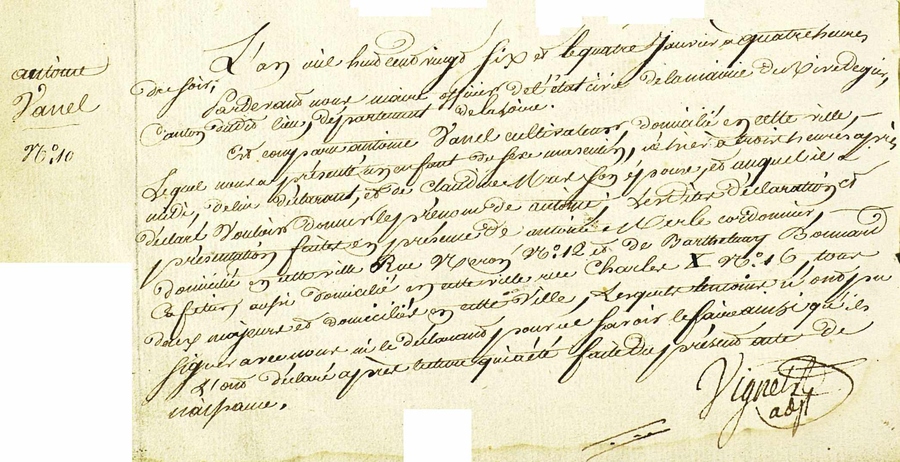 antoine
Vanel
N.º 10
L'an mil huit cent vingt six et le quatre Janvier à quatre heures
du soir,
Pardevant nous maire officier de l'état civil de la mairie de Rivedegier,
Canton dudit lieu, département de la Loire.
Est comparu antoine Vanel cultivateur domicilié en cette ville,
Lequel nous a présenté un enfant de sexe masculin, né hier à trois heures après
midi, de lui déclarant, et de Claudine son épouse, et auquel il a
déclaré vouloir donner le prénom de antoine, Lesdites déclaration et
présentation faites en présence de antoine Merle cordonnier,
domicilié en cette ville Rue Neron N.º 12 et de Barthelemy Bonnand
Cafetier, aussi domicilié en cette ville rue Charles X N.º 16, tous
deux majeurs et domiciliés en cette ville, Lesquels temoins n'ont pu
signer avec nous ni le déclarant, pour ne savoir le faire ainsi qu'ils
L'ont déclaré après lecture qui a été faite du présent acte de
naissance.
Vignet
adjt